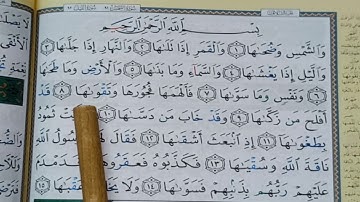 بِسْمِ اللَّهِ الرَّحْمَٰنِ الرَّحِيمِ
وَالشَّمْسِ وَضُحَىٰهَا ١ وَالْقَمَرِ إِذَا تَلَىٰهَا ٢ وَالنَّهَارِ إِذَا جَلَّىٰهَا ٣
وَاللَّيْلِ إِذَا يَغْشَىٰهَا ٤ وَالسَّمَاءِ وَمَا بَنَىٰهَا ٥ وَالْأَرْضِ وَمَا طَحَىٰهَا
٦ وَنَفْسٍ وَمَا سَوَّىٰهَا ٧ فَأَلْهَمَهَا فُجُورَهَا وَتَقْوَىٰهَا ٨ قَدْ
أَفْلَحَ مَن زَكَّىٰهَا ٩ وَقَدْ خَابَ مَن دَسَّىٰهَا ١٠ ثَمُودُ
بِطَغْوَىٰهَا ١١ إِذِ انۢبَعَثَ أَشْقَىٰهَا ١٢ فَقَالَ اللَّهِ
نَاقَةَ اللَّهِ وَسُقْيَىٰهَا ١٣ فَكَذَّبُوهُ فَعَقَرُوهَا فَدَمْدَمَ
عَلَيْهِمْ رَبُّهُم بِذَنۢبِهِمْ فَسَوَّىٰهَا ١٤ وَلَا يَخَافُ عُقْبَىٰهَا ١٥